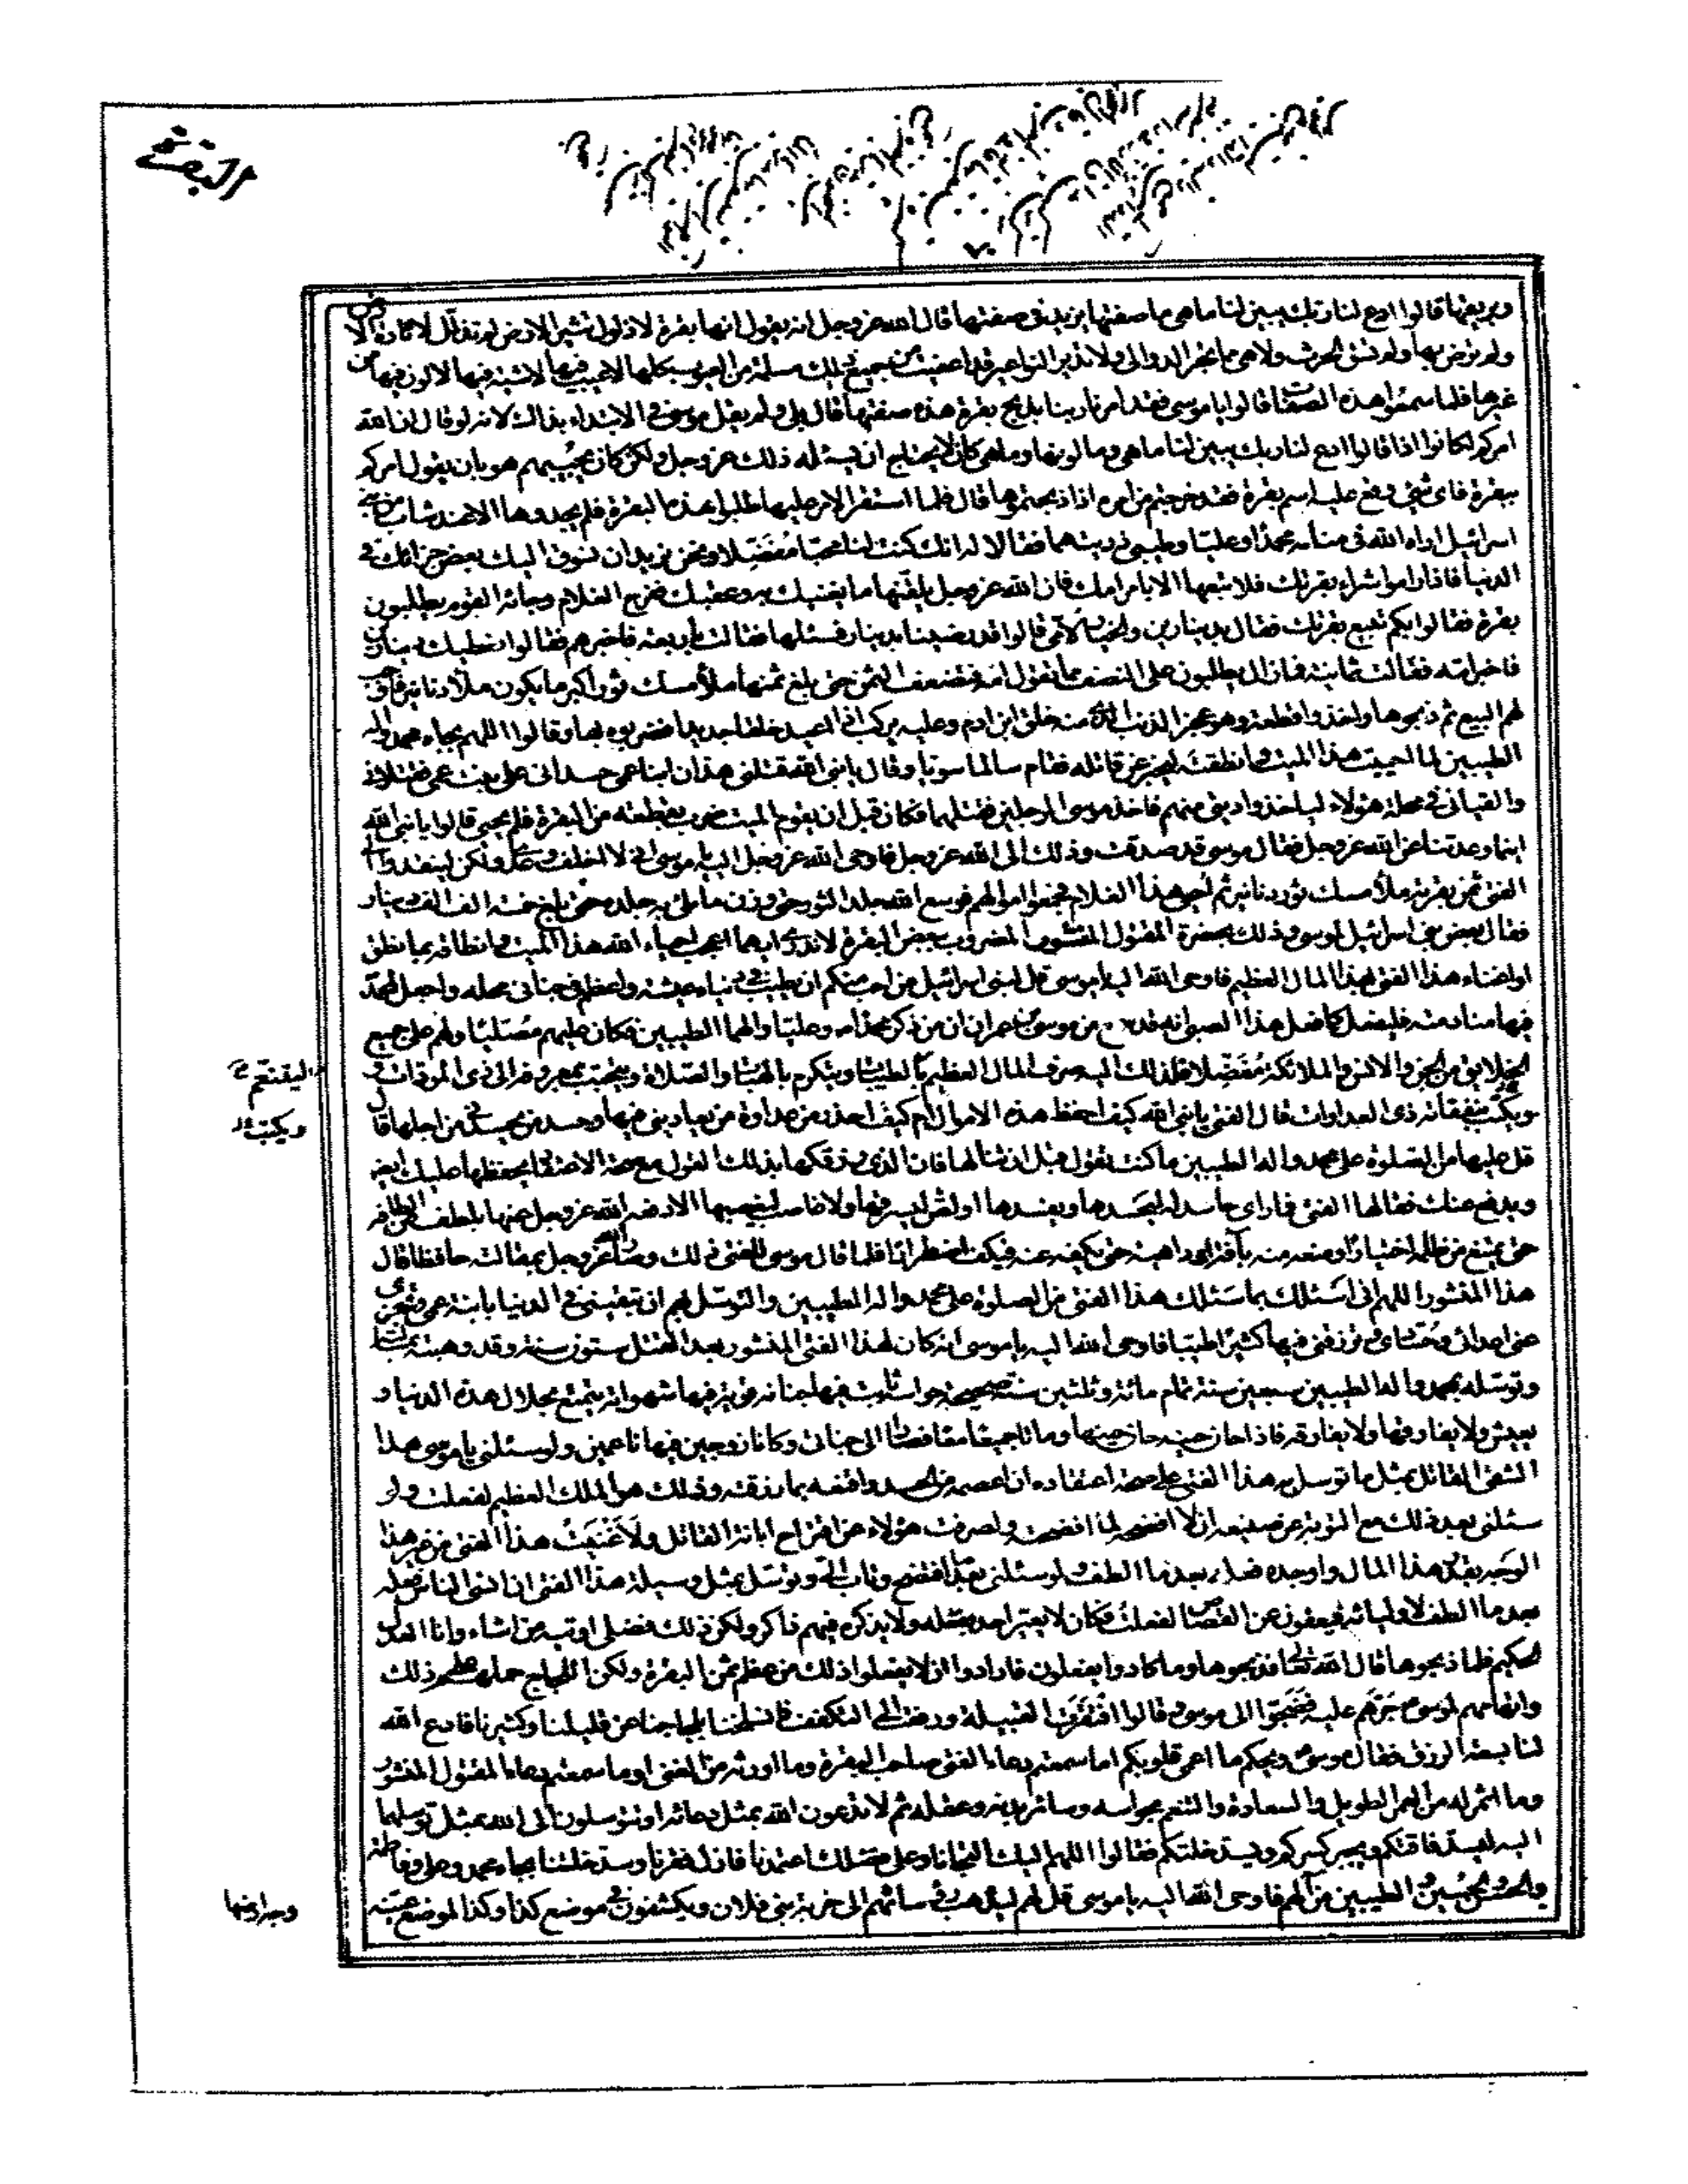 البقرة
وبريعنها قالوا ادع لنا ربك يبين لنا ما هي ما صفتها يزيد في صفتها قال الله عز وجل انه يقول انها بقرة لا ذلول تثير الارض لم تذلل لاثارة الا
ولم ترض بها ولا تسقى الحرث ولا هي مما تجر الدوالي ولا تدير النواعير قد اعفيت من جميع ذلك مسلمة من العيوب كلها لا عيب فيها لا شية فيها لا لون فيها من
غيرها فلما سمعوا هذه الصفات قالوا يا موسى فقد امرنا ربنا بذبح بقرة هذه صفتها قال بلى ولم يقل موسى في الابتداء بذلك لانه لو قال ان الله
امركم لكانوا اذا قالوا ادع لنا ربك يبين لنا ما هي وما لونها وما هي كان لا يحتاج ان يسئله ذلك عز وجل ولكن كان يجيبهم هو بان يقول امركم
ببقرة فاى شئ وقع عليه اسم بقرة فقد خرجتم من امره اذا ذبحتموها قال فلما استقر الامر عليها طلبوا هذه البقرة فلم يجدوها الا عند شاب من بني
اسرائيل اراه الله في منامه محمدا وعليا وطيبي ذريتهما فقالا له انك كنت لنا محبا مفضلا ونحن نريد ان نسوق اليك بعض جزائك في
الدنيا فاذا راموا شراء بقرتك فلا تبعها الا بامر امك فان الله عز وجل يلقنها ما يغنيك به وعقبك ففرح الغلام وجائه القوم يطلبون
بقرة فقالوا بكم تبيع بقرتك فقال بدينارين والخيار لامي قالوا قد رضينا بدينار فسئلها فقالت باربعة فاخبرهم فقالوا نعطيك دينارين
فاخبر امه فقالت ثمانية فما زالوا يطلبون على النصف مما تقول امه فتضعف الثمن حتى بلغ ثمنها ملأ مسك ثور اكبر ما يكون ملأه دنانير فاوجب
لهم البيع ثم ذبحوها واخذوا قطعة وهو عجز الذنب الذي منه خلق ابن ادم وعليه يركب اذا اعيد خلقا جديدا فضربوه بها وقالوا اللهم بجاه محمد واله
الطيبين لما احييت هذا الميت وانطقته ليخبر عن قاتله فقام سالما سويا وقال يا نبي الله قتلني هذان ابنا عمي حسداني على بنت عمي فقتلاني
والقياني في محلة هؤلاء لياخذوا ديتي منهم فاخذ موسى الرجلين فقتلهما فكان قبل ان يقوم الميت ضرب بقطعة من البقرة فلم يحي قالوا يا نبي الله
اين ما وعدتنا عن الله عز وجل فقال موسى قد صدقت وذلك الى الله عز وجل فاوحى الله عز وجل اليه يا موسى اني لا اخلف وعدي ولكن لينقدوا
الفتى ثمن بقرته ملأ مسك ثور دنانير ثم احيي هذا الغلام فجمعوا اموالهم فوسع الله جلد الثور حتى وزن ما ملئ به جلده حتى بلغ خمسة الف الف دينار
فقال بعض بني اسرائيل لموسى وذلك بحضرة المقتول المنشور المضروب ببعض البقرة لا ندري ايهما اعجب احياء الله هذا الميت وانطاقه بما نطق
او اغناء هذا الفتى بهذا المال العظيم فاوحى الله اليه يا موسى قل لبني اسرائيل من احب منكم ان يطيب في دنياه عيشه واعظم في جناني محله واجعل لمحمد
فيها منادمته فليفعل كما فعل هذا الصبي انه قد سمع من موسى بن عمران ذكر محمد وعلي والهما الطيبين فكان عليهم مصليا ولهم على جميع
الخلايق من الجن والانس والملائكة مفضلا فلذلك اليه صرف المال العظيم
ويكبت بنفقاته ذى العداوات قال الفتى يا نبي الله كيف احفظ هذه الاموال ام كيف احذر من عداوة من يعاديني فيها وحسد من يحسدني من اجلها قال
قل عليها من الصلوة على محمد واله الطيبين ما كنت تقول قبل ان تنالها فان الذي رزقكها بذلك القول مع صحة الاعتقاد يحفظها عليك ايضا
ويدفع عنك فقالها الفتى فما راى حاسد له ليحسدها ويفسدها او لص ليسرقها ولا غاصب ليغصبها الا دفعه الله عز وجل عنها بلطف من الطافه
حتى يمتنع من ظلمه اختيارا او منعه منه بآفة او داهية حتى يكفه عنه فيكف اضطرارا فلما قال موسى للفتى ذلك وصار الله عز وجل بمقالته حافظا قال
هذا المنشور اللهم اني اسئلك بما سئلك هذا الفتى من الصلوة على محمد واله الطيبين والتوسل بهم ان تبقيني في الدنيا بابنة عمي وتجزي
عني اعدائي وحسادي وترزقني فيها كثيرا طيبا فاوحى الله اليه يا موسى انه كان لهذا الفتى المنشور بعد القتل ستون سنة وقد وهبت له بمسئلته
وتوسله بمحمد واله الطيبين سبعين سنة تمام مائة وثلثين سنة صحيحة حواسه ثابت فيها جنانه قوية فيها شهواته يتمتع بحلال هذه الدنيا و
يعيش ولا يفارقها ولا تفارقه فاذا حان حينه حان حينها وماتا جميعا معا فصارا الى جناني وكانا زوجين فيها ناعمين ولو سئلني يا موسى هذا
الشقي القاتل بمثل ما توسل به هذا الفتى على صحة اعتقاده ان اعصمه من الحسد واقنعه بما رزقته وذلك هو الملك العظيم لفعلت ولو
سئلني بعد ذلك مع التوبة عن صنيعه ان لا افضحه لما افضحته ولصرفت هؤلاء عن اقتراح ابانة القاتل ولاغنيت هذا الفتى من غير هذا
الوجه بقدر هذا المال واوجده ولو سئلني بعد ما افتضح وتاب الي وتوسل بمثل وسيلة هذا الفتى ان انسي الناس فعله
بعد ما الطف لاوليائه فيعفون عن القصاص لفعلت فكان لا يعير احد بفعله ولا يذكره فيهم ذاكر ولكن ذلك فضلي اوتيه من اشاء وانا العدل
الحكيم فلما ذبحوها قال الله تعالى فذبحوها وما كادوا يفعلون فارادوا ان لا يفعلوا ذلك من عظم ثمن البقرة ولكن اللجاج حملهم على ذلك
واتهامهم لموسى جرهم عليه فضجوا الى موسى وقالوا افتقرت القبيلة ودفعت الى التكفف وانسلخنا بلجاجنا عن قليلنا وكثيرنا فادع الله
لنا بسعة الرزق فقال موسى ويحكم ما اعمى قلوبكم اما سمعتم دعاء الفتى صاحب البقرة وما اورثه من الغنى او ما سمعتم دعاء المقتول المنشور
وما اثمر له من العمر الطويل والسعادة والتنعم بحواسه وساير بدنه وعقله لم لا تدعون الله بمثل دعائهما وتتوسلون الى الله بمثل توسلهما
اليه ليسد فاقتكم ويجبر كسركم ويسد خلتكم فقالوا اللهم اليك التجانا وعلى فضلك اعتمدنا فازل فقرنا وسد خلتنا بجاه محمد وعلي وفاطمة
والحسن والحسين والطيبين من الهم فاوحى الله اليه يا موسى قل لهم ليذهب رؤسائهم الى خربة بني فلان ويكشفون في موضع كذا وكذا لموضع عينه